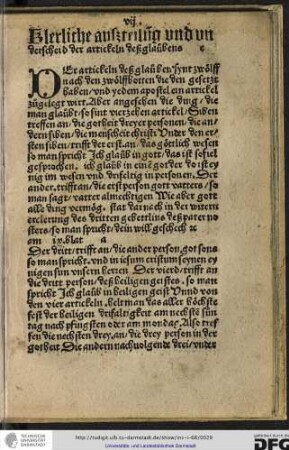 vij.
Klerliche außteilũg vnd vn
derscheid der artickeln deß glaubens c
DEr artickeln deß glaubẽn synt zwölff
nach den zwölffbotten die den gesetzt
haben/ vnd yedem apostel ein artickel
zůgelegt wirt. Aber angesehen die ding/ die
man glaubt/ so sint vierzehen artickel/ Siben
treffen an/ die gotheit dreyer personen/ die an-
dern siben/ die menscheit christi Vnder den er-
sten siben/ trifft der erst an/ das götlich wesen
so man spricht Jch glaub in gott/ das ist so fiel
gesprochen. ich glaub in einẽ got der do ist ey
nig im wesen vnd drifeltig in personen. Der
ander. trifft an/ die erst person gott vatters/ so
man sagt/ vatter almechtigen Wie aber gott
alle ding vermög/ stat da nach in der wittern
erclerung des dritten gebettlins deß pater no
sters/ so man spricht/ dein will geschech ꝛc
am ix. blat a
Der dritt/ trifft an/ die ander person/ got sons
so man spricht. vnd in jesum cristum seynen ey
nigen sun vnsern herren. Der vierd/ trifft an
die dritt person/ deß heiligen geistes. so man
spricht Jch glaub in heiligen geist Vnnd von
den vier artickeln/ helt man das aller höchste
fest der heiligen drifaltigkeit am nechstẽ sun
tag nach pfingsten oder am mondag/ Also tref
fen die nechsten drey/ an/ die drey person in der
gotheit Die andern nachuolgende drei/ vnder
http://tudigit.ulb.tu-darmstadt.de/show/inc-i-68/0029
Universitäts- und Landesbibliothek Darmstadt